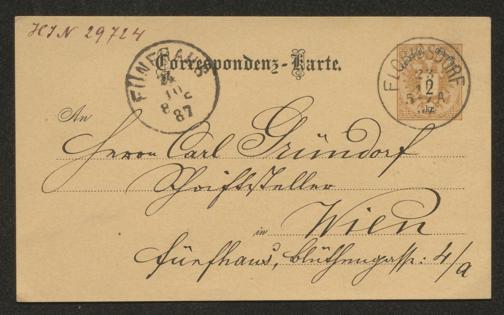 HIN 29724
Correspondenz-Karte.
FÜNFHAUS
24
10
87
FLORIDSDORF
23
2
An
Herrn Carl Gründorf
Schriftsteller
in Wien
Fünfhaus, Blüthengasse: 4/a